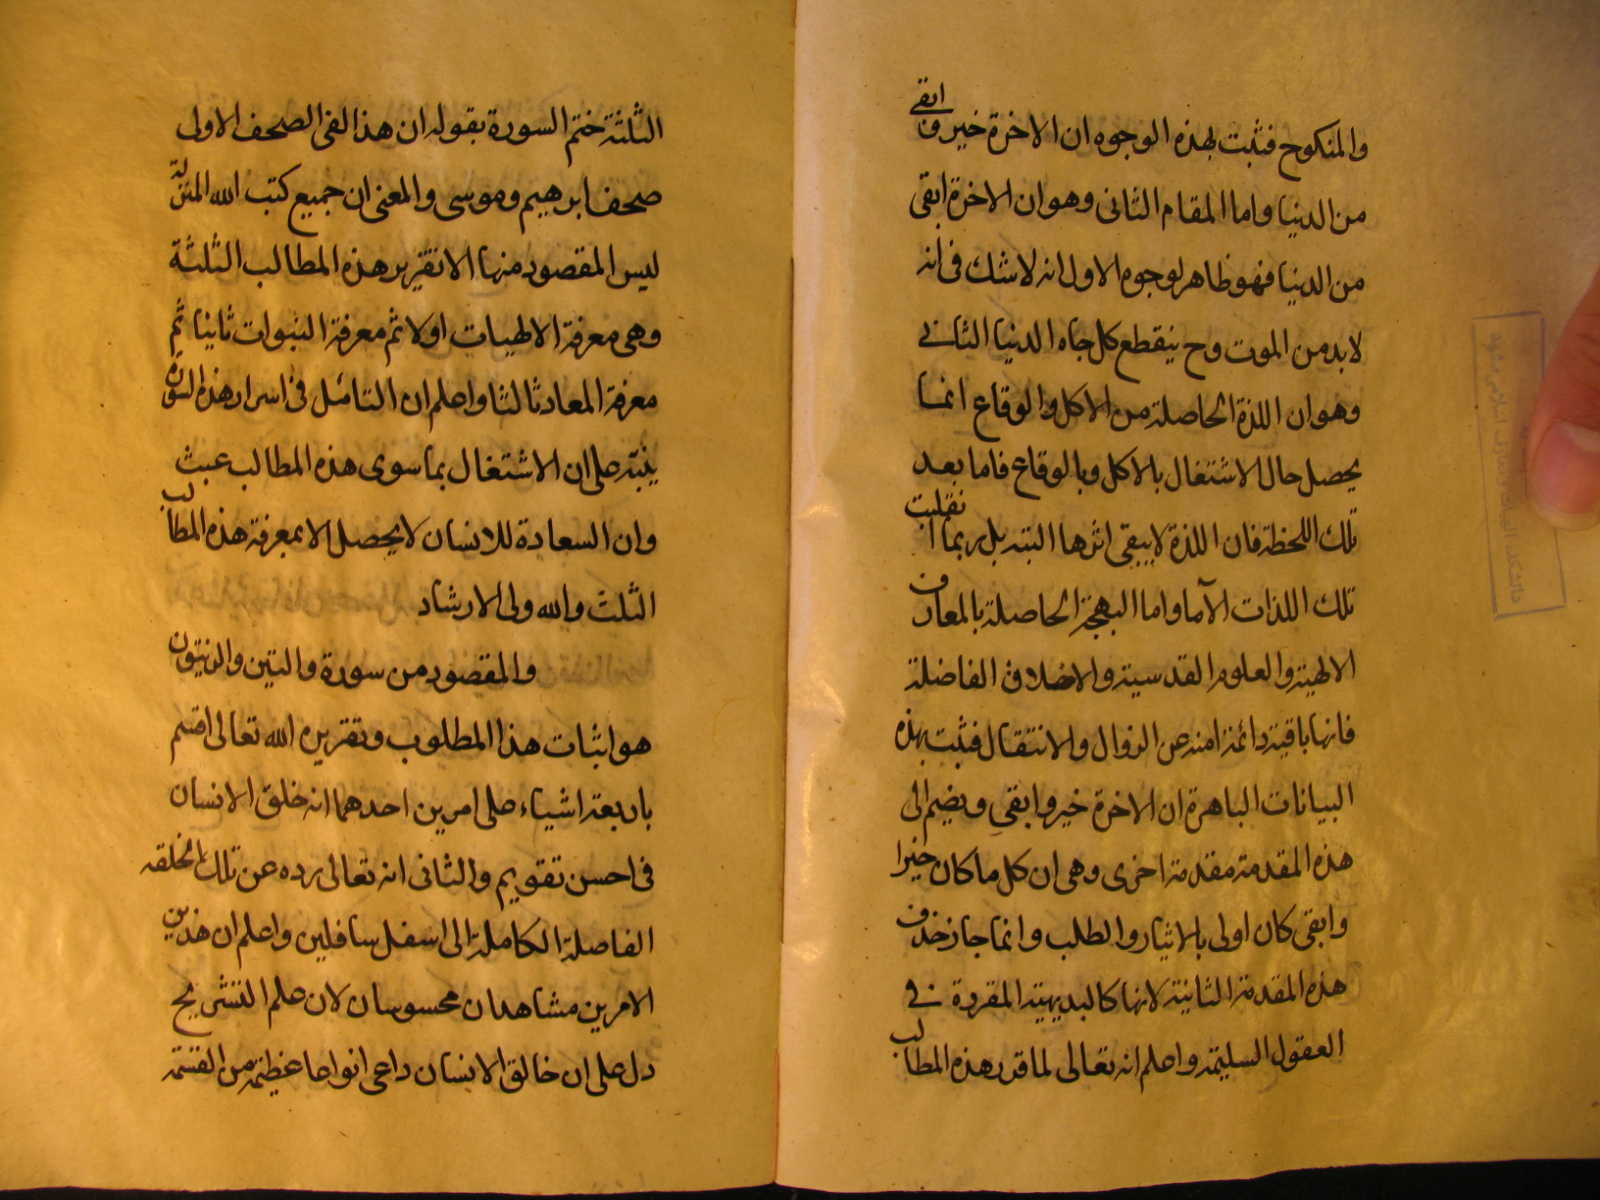 والمنكوح فثبت بهذه الوجوه ان الاخرة خير وابقى
من الدنيا واما المقام الثانى وهو ان الاخرة ابقى
من الدنيا فهو ظاهر لوجوه الاول انه لاشك فى انه
لابد من الموت وح ينقطع كل جاه الدنيا الثانى
وهو ان اللذة الحاصلة من الاكل والوقاع انما
يحصل حال الاشتغال بالاكل وبالوقاع فاما بعد
تلك اللحظة فان اللذة لا يبقى اثرها البتة بل ربما انقلبت
تلك اللذات الآما واما البهجة الحاصلة بالمعارف
الالهية والعلوم القدسية والاخلاق الفاضلة
فانها باقية دائمة امنة عن الزوال والانتقال فثبت بهذه
البيانات الباهرة ان الاخرة خير وابقى ويضم الى
هذه المقدمة مقدمة اخرى وهى ان كل ما كان خيرا
وابقى كان اولى بالايثار والطلب وانما جاز حذف
هذه المقدمة الثانية لانها كالبديهية المقررة فى
العقول السليمة واعلم انه تعالى لما قرر هذه المطالب
الثلثة ختم السورة بقوله ان هذا لفى الصحف الاولى
صحف ابرهيم وموسى والمعنى ان جميع كتب الله المنزلة
ليس المقصود منها الا تقرير هذه المطالب الثلثة
وهى معرفة الالهيات اولا ثم معرفة النبوات ثانيا ثم
معرفة المعاد ثالثا واعلم ان التامل فى اسرار هذه السورة
ينبه على ان الاشتغال بما سوى هذه المطالب عبث
وان السعادة للانسان لا يحصل الا بمعرفة هذه المطالب
الثلث والله ولى الارشاد
والمقصود من سورة والتين والزيتون
هو اثبات هذا المطلوب وتقريره الله تعالى اقسم
باربعة اشياء على امرين احدهما انه خلق الانسان
فى احسن تقويم والثانى انه تعالى رده عن تلك الخلقه
الفاصلة الكاملة الى اسفل سافلين واعلم ان هذين
الامرين مشاهدان محسوسان لان علم التشريح
دل على ان خالق الانسان داعى انواعا عظيمة من